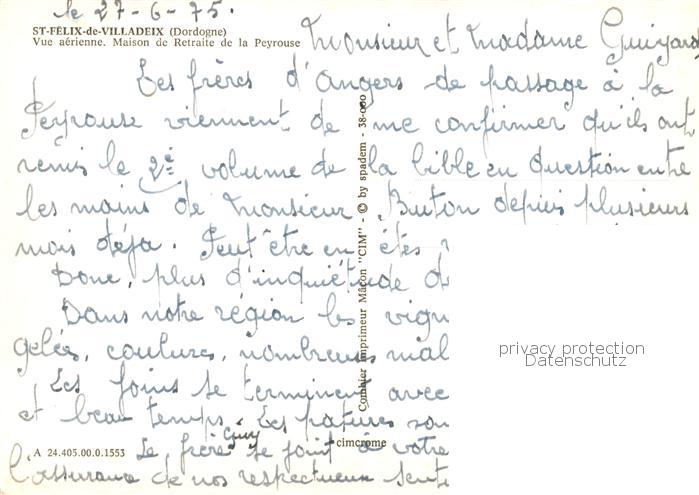 le 27-6-75.
ST-FÉLIX-de-VILLADEIX (Dordogne)
Vue aérienne. Maison de Retraite de la Peyrouse
Monsieur et Madame Guiyard
Les frères d'Angers de passage à la
Peyrouse viennent de me confirmer qu'ils ont
remis le 2è volume de la bible en question entre
les mains de Monsieur Buton depuis plusieurs
mois déja. Peut être en êtes
Donc, plus d'inquiétude
Dans notre région les vign
gelées, coulures, nombreuses mal
Les foins se terminent avec
et beau temps. Les patures son
Le frère Guy se joint à votre
l'assurance de nos respectueux senti
A 24.405.00.0.1553
cimcrome
Combier imprimeur Mâcon "CIM" - © by spadem - 38-000
privacy protection
Datenschutz